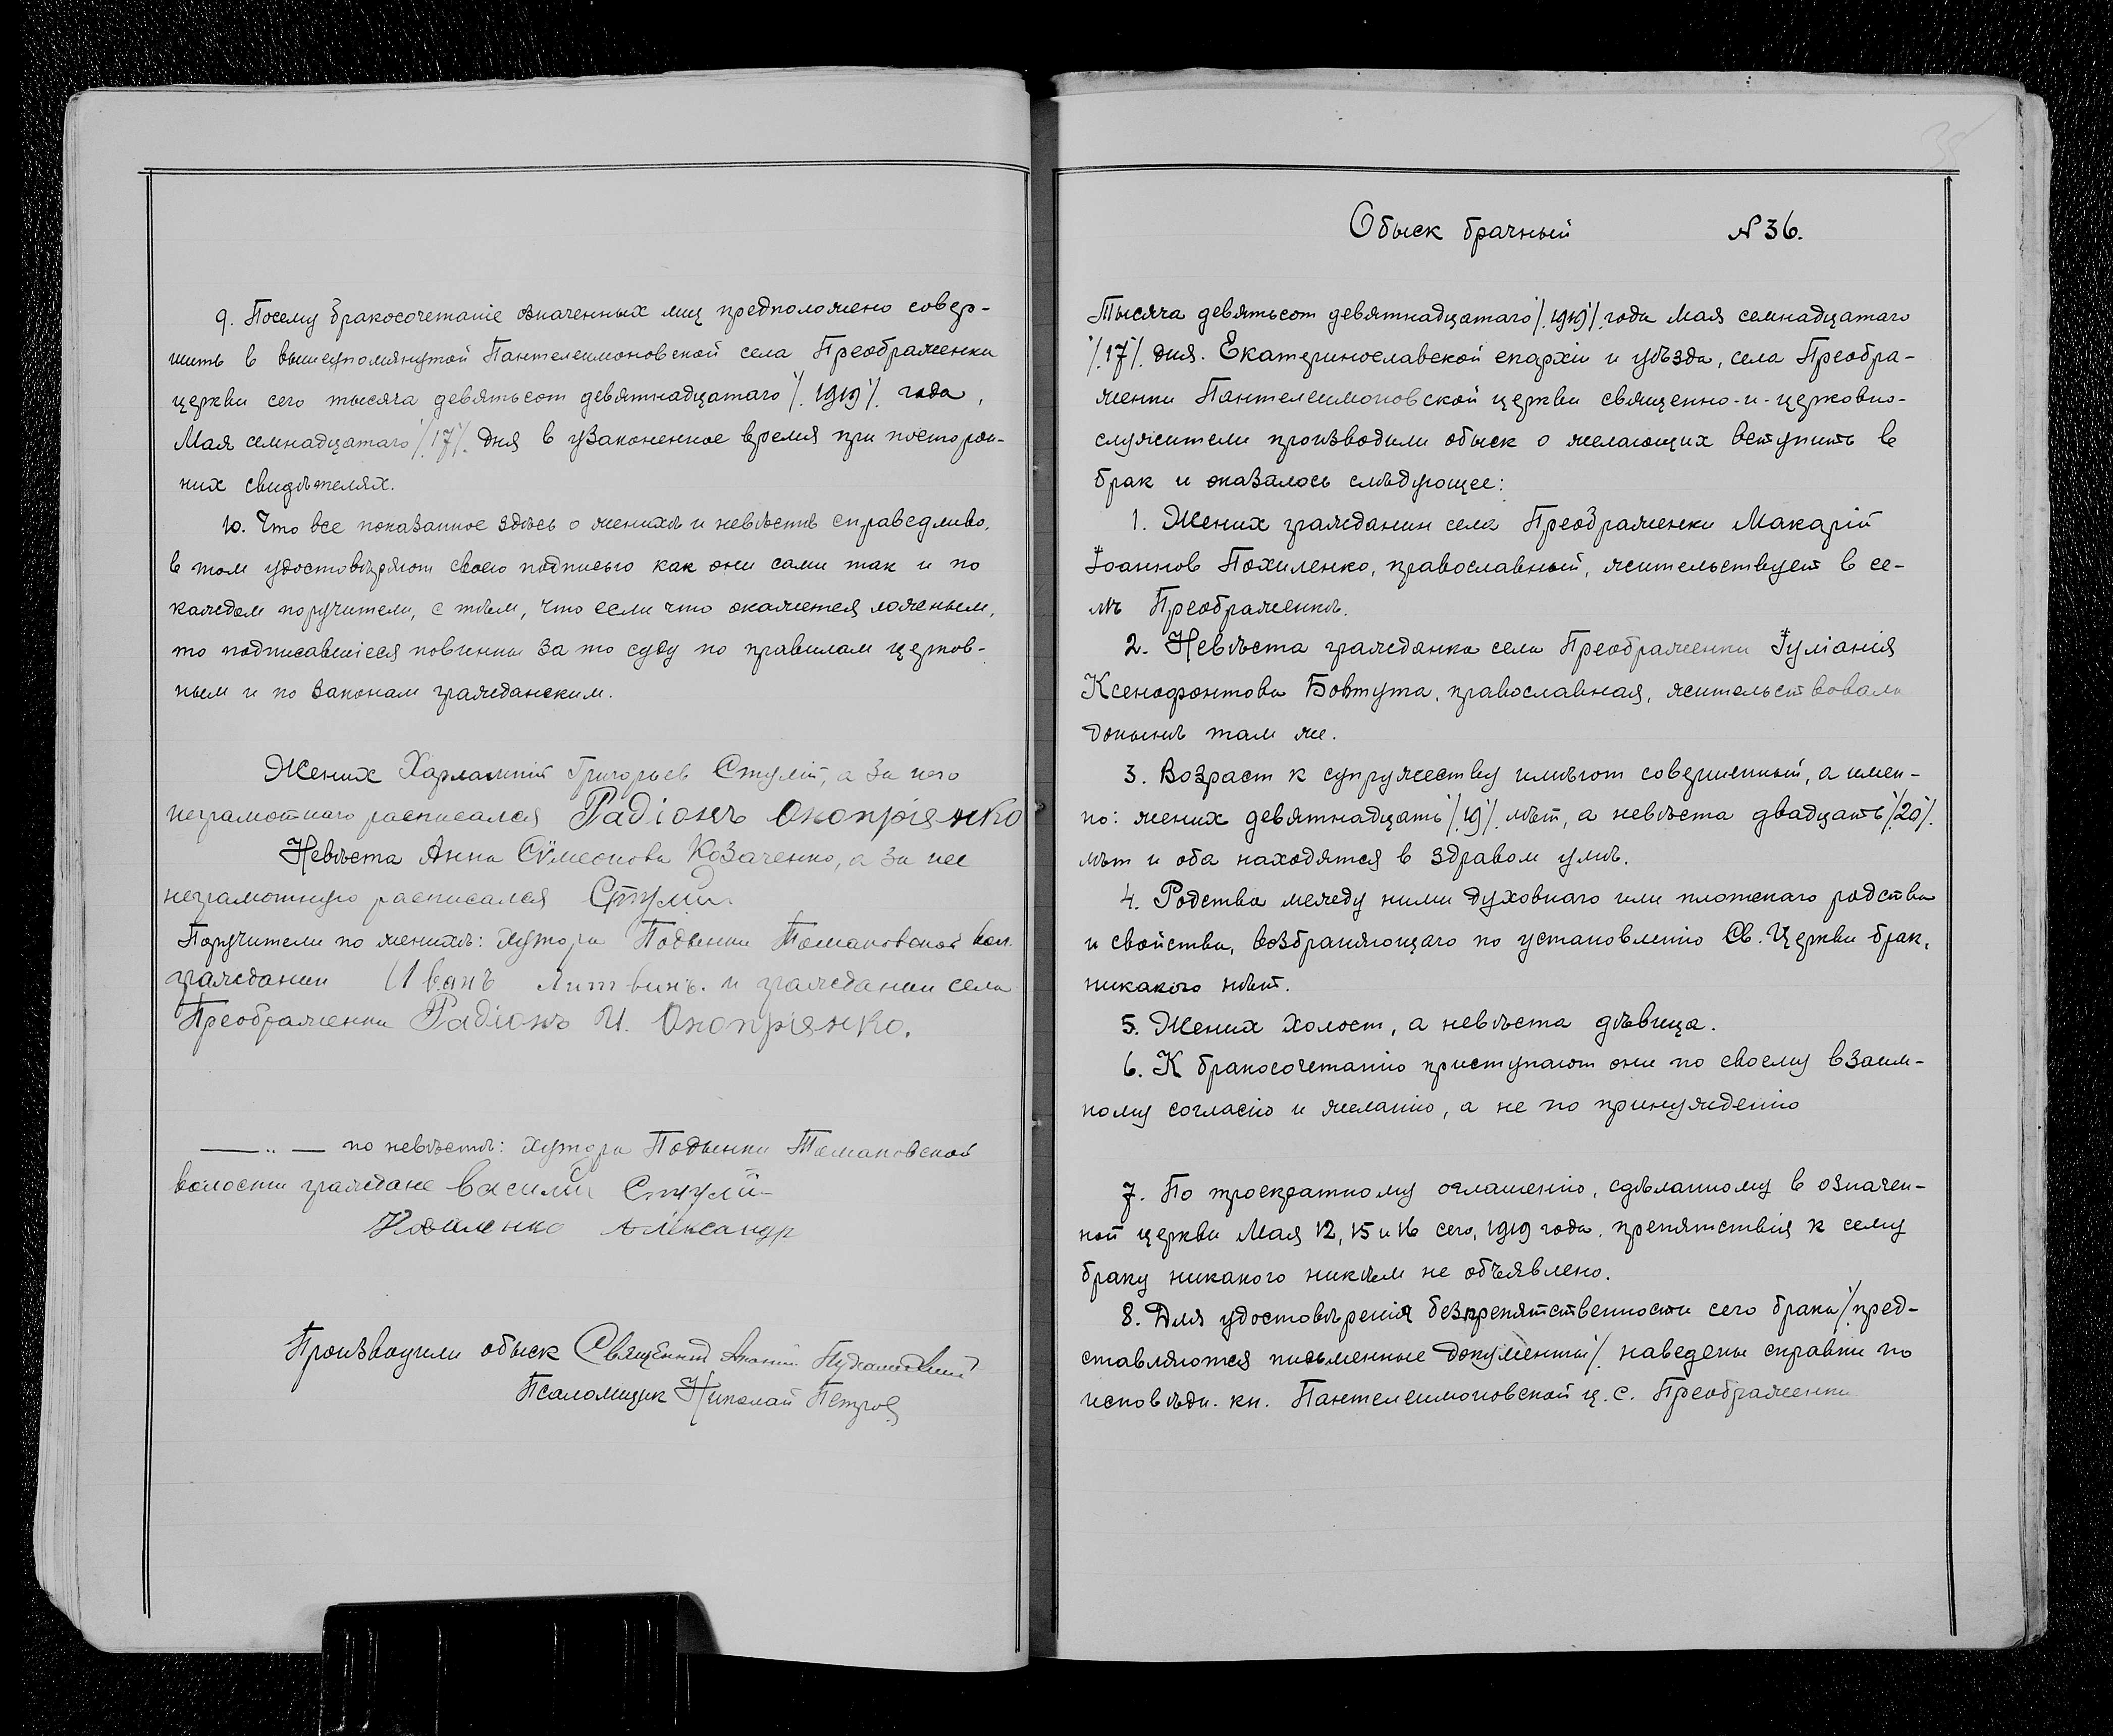 9. Посему бракосочетаніе означенных лиц предположено совер-
шить в вышеупомянутой Пантелеимоновской села Преображенки
церкви сего тысяча девятьсот девятнадцатаго /.1919/. года,
Мая семнадцатаго /.17/. дня в узаконенное время при посторон-
них свидѣтелях.
10. Что все показанное здѣсь о женихѣ и невѣстѣ справедливо,
в том удостовѣряют своею подписью как они сами так и по
каждом поручители, с тѣм, что если что окажется ложным,
то подписавшіеся повинны за то суду по правилам церков-
ным и по законам гражданским.
Жених Харлампій Григорьев Стулій, а за него
неграмотнаго расписался Радіонъ Оноприянко
Невѣста Анна Сѵмеонова Козаченко, а за нее
неграмотную расписался Стулій
Поручители по женихѣ: хутора Подынки Томаковской вол.
гражданин Иванъ Литвинъ. и гражданин села
Преображенки Радіонъ И. Оноприянко.
—— „ — по невѣстѣ: хутора Подынки Томаковской
волости граждане Василий Стулій
Александр
Производили обыск Священник
Псаломщик Николай Петров
Обыск брачный № 36.
Тысяча девятьсот девятнадцатаго /.1919/. года Мая семнадцатаго
/.17/. дня. Екатеринославской епархіи и уѣзда, села Преобра-
женки Пантелеимоновской церкви священно-и-церковно-
служители производили обыск о желающих вступить в
брак и оказалось слѣдующее:
1. Жених гражданин села Преображенки Макарій
Іоаннов Похиленко, православный, жительствует в се-
лѣ Преображенкѣ.
2. Невѣста гражданка села Преображенки Іуліанія
Ксенофонтова Бовтута, православная, жительствовала
донынѣ там же.
3. Возраст к супружеству имѣют совершенный, а имен-
но: жених девятнадцать /.19/. лѣт, а невѣста двадцать /.20/.
лѣт и оба находятся в здравом умѣ.
4. Родства между ними духовнаго или плотскаго родства
и свойства, возбраняющаго по установленію Св. Церкви брак,
никакого нѣт.
5. Жених холост, а невѣста дѣвица.
6. К бракосочетанію приступают они по своему взаим-
ному согласію и желанію, а не по принужденію
7. По троекратному оглашенію, сдѣланному в означен-
ной церкви Мая 12, 15 и 16 сего, 1919 года, препятствія к сему
браку никакого никѣм не объявлено.
8. Для удостовѣренія безпрепятственности сего брака /.пред-
ставляются письменные документы/. наведены справки по
исповѣдн. кн. Пантелеимоновской ц. с. Преображенки